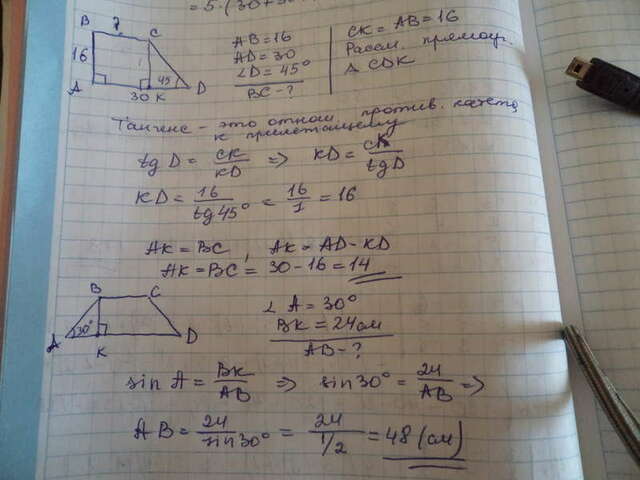 = 5·(30+
B ? C
16
45
A 30 K D
AB = 16
AD = 30
∠D = 45°
BC - ?
CK = AB = 16
Рассм. прямоуг.
Δ CDK
Тангенс - это отнош. против. катета
к прилежащему
tg D = CK/KD => KD = CK/tg D
KD = 16/tg 45° = 16/1 = 16
AK = BC, AK = AD - KD
AK = BC = 30 - 16 = 14
B C
30°
A K D
∠ A = 30°
BK = 24 см
AB - ?
sin A = BK/AB => sin 30° = 24/AB =>
AB = 24/sin 30° = 24/1/2 = 48 (см)